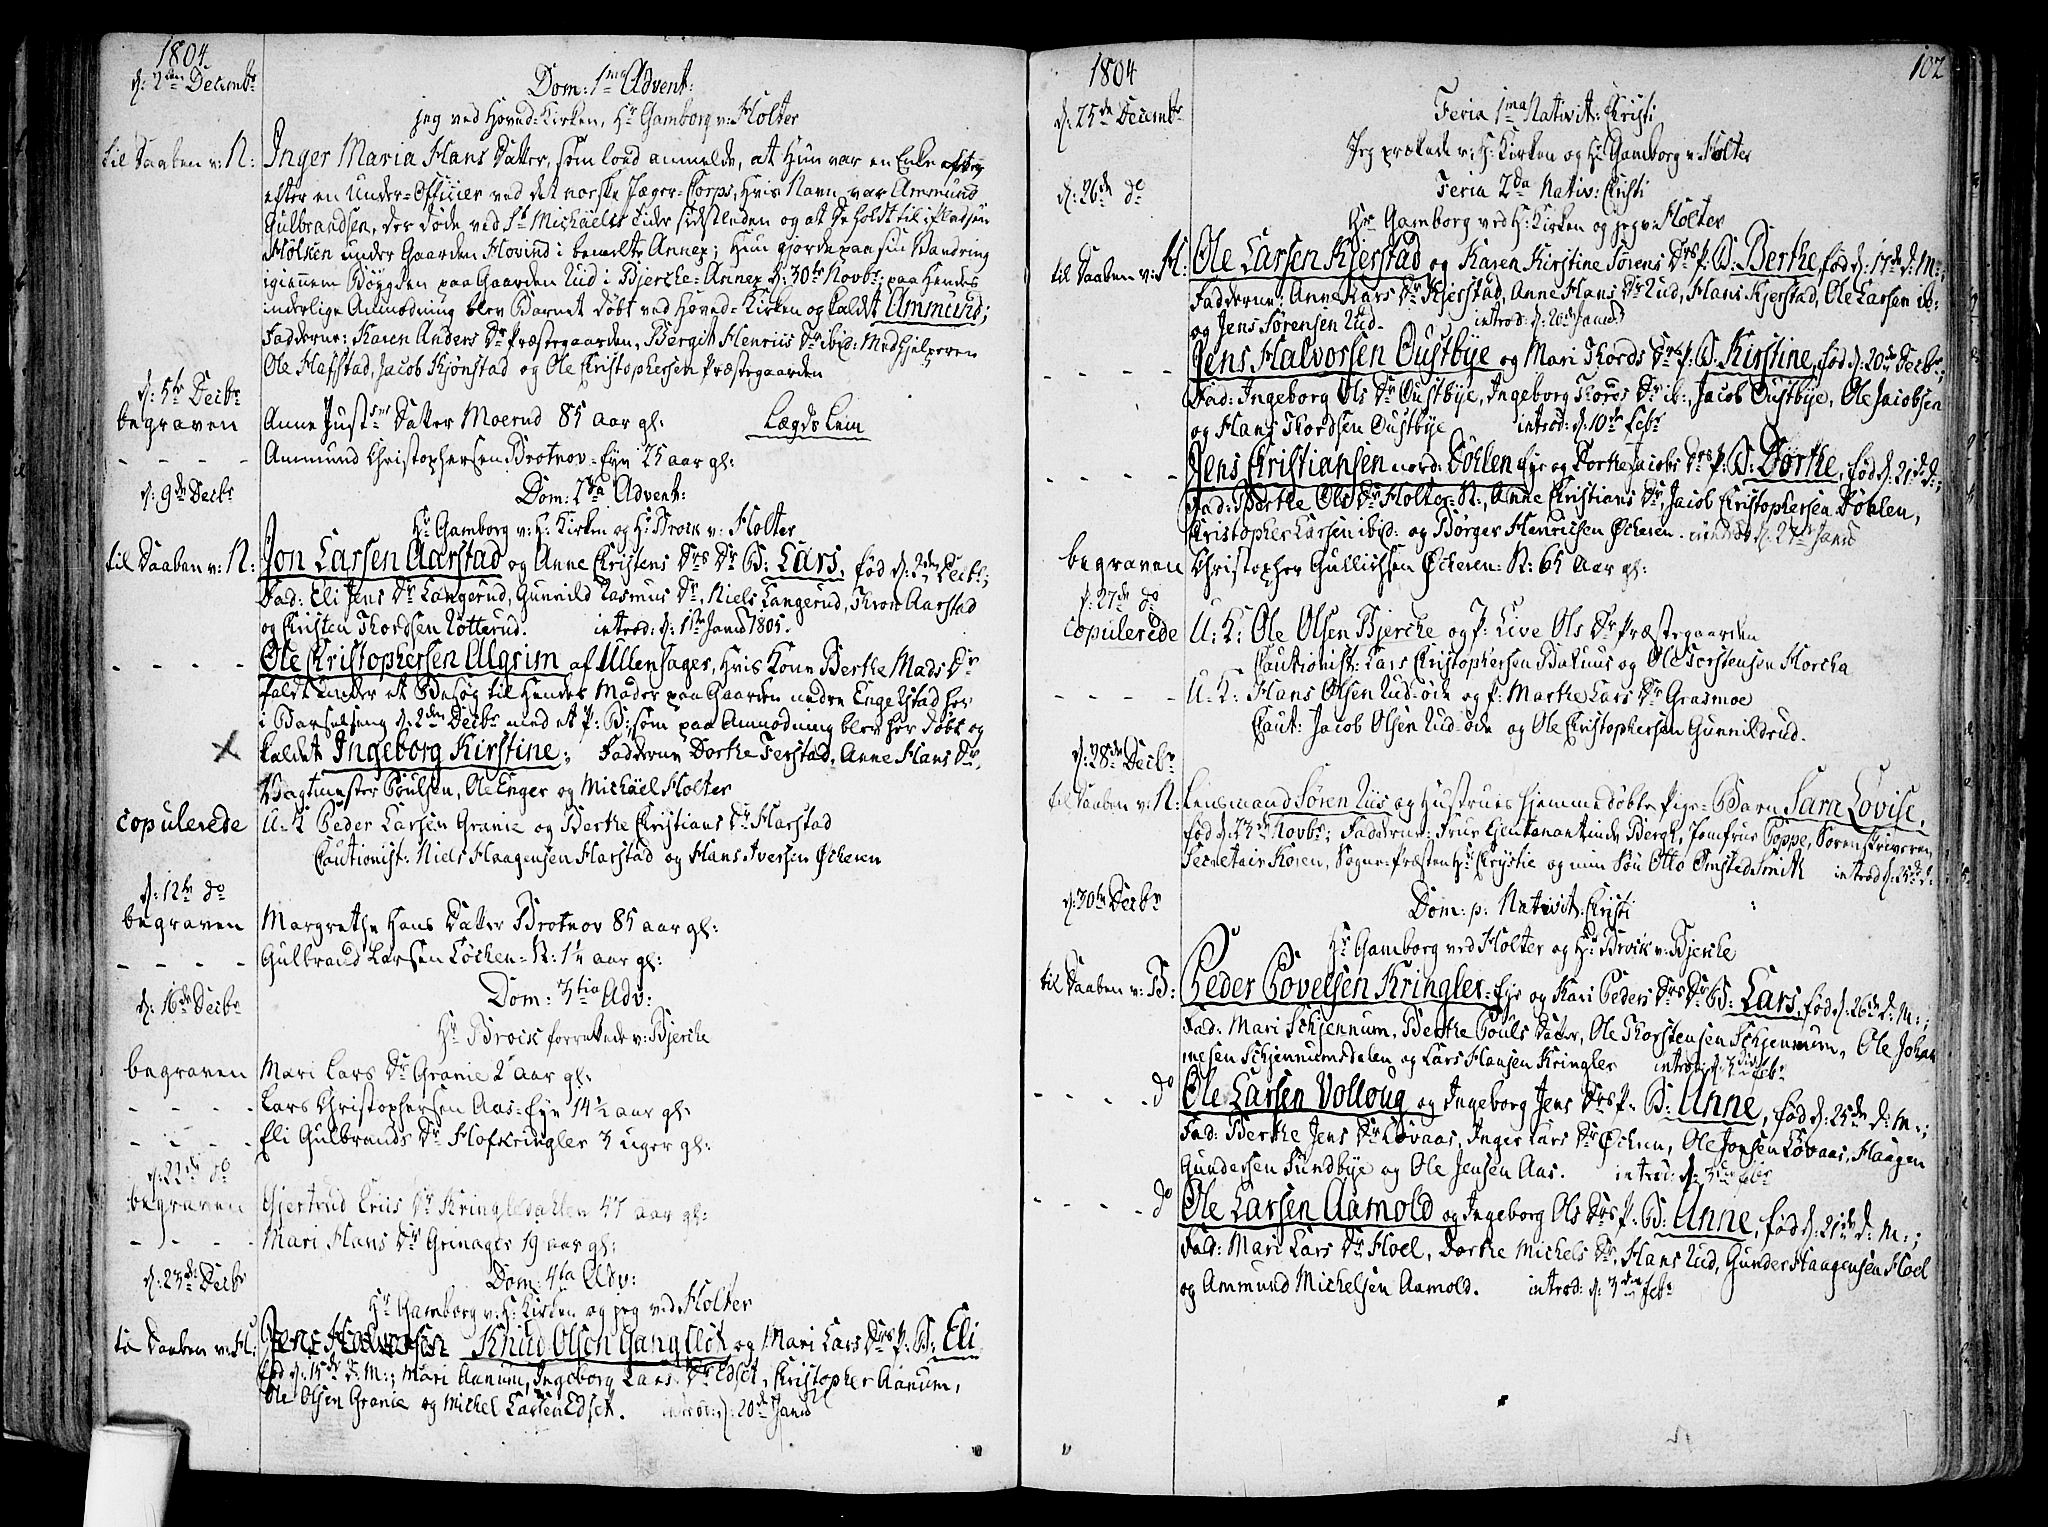 1804
d: 2den Decembr
Dom: 1ma Advent:
jeg ved Hoved-Kirken, Hr Gamborg v: Holter
til Daaben v: N:
Inger Maria Hans Datter, som loed anmelde, at Hun var en Enke
efter en Under-Officier ved det norske Jæger-Corps, hvis Navn var Ammund
Gulbrandsen, der døde ved St Michaelis tider sidstleden og at De holdt til i Pladsen
Holken under Gaarden Hovind i bemelte Annex; Hun gjorde paa sin Vandring
igiennem Bøygden paa Gaarden Rud i Bjercke-Annex d: 30te Novbr; paa Hendes
inderlige Anmodning blev Barnet døbt ved Hoved-Kirken og kaldet Ammund;
Fadderne: Karen Anders Dr Præstegaarden, Bergit Henrics Dr ibid: Medhjelperen
Ole Hafstad, Jacob Kjønstad og Ole Christophersen Præstegaarden
d: 5te Decbr
begraven
Anne Justsns Datter Moerud 85 aar gl: Lægds Lem
- - - - Ammund Christophersen Brotnov-Eye 25 aar gl:
d: 9de Decbr
Dom: 2da Advent:
Hr Gamborg v: H: Kirken og Hr Broik v: Holter
til Daaben v: N:
Jon Larsen Aarstad og Anne Christens Drs Dr B: Lars, fød d: 2den Decbr;
Fad: Eli Jens Dr Langerud, Gunnild Rasmus Dr, Niels Langerud, Thron Aarstad
og Christen Thordsen Rotterud. introd: d: 1ste Janv 1805.
- - - - Ole Christophersen Algrim af Ullensager, hvis Kone Berthe Mads Dr
faldt under et Besøg til Hendes Moder paa Gaarden nedre Engelstad her
i Barselseng d: 2den Decbr med et P: B: som paa Anmodning blev her døbt og
X kaldet Ingeborg Kirstine; Fadderne Dorthe Ferstad, Anne Hans Dr,
Vagtmester Poulsen, Ole Enger og Michael Holter
copulerede
U-K Peder Larsen Granie og Berthe Christians Dr Harstad
Cautionist: Niels Haagensen Harstad og Hans Iversen Ockeren
d: 12te do
begraven
Margrethe Hans Datter Brotnov 85 aar gl:
- - - - Gulbrand Larsen Løchen-N: 1 1/4 aar gl:
d: 16de Decbr
Dom: 3tia Adv:
Hr Broik forrettede v: Bjercke
begraven
Mari Lars Dr Granie 2 aar gl:
- - - - Lars Christophersen Aas-Eye 14 1/2 aar gl:
- - - - Eli Gulbrands Dr Hofkringler 3 uger gl:
d: 22de do
begraven
Gjertrud Erics Dr Kringlerdahlen 47 aar gl:
- - - - Mari Hans Dr Grinager 19 aar gl:
d: 23de Decbr
Dom: 4ta Adv:
Hr Gamborg v: H: Kirken og jeg ved Holter
til Daaben v: H:
Jens Halvorsen Knud Olsen Gangsløt og Mari Lars Drs P: B: Eli
fød d: 15de d: M:; Mari Aanum, Ingeborg Lars Dr Edset, Christopher Aanum,
Ole Olsen Granie og Michel Larsen Edset. introd: d: 20de Janv
102
1804
d: 25de Decembr
Feria 1ma Nativit: Christi
Jeg prækede v: H: Kirken og Hr Gamborg v: Holter
d: 26de do
Feria 2da Nativ: Christi
Hr Gamborg ved H: Kirken og jeg ve Holter
til Daaben v: H:
Ole Larsen Kjerstad og Karen Kirstine Sørens Drs P: B: Berthe, fød d: 17de d: M:;
Fadderne: Anne Lars Dr Kjerstad, Anne Hans Dr Rud, Hans Kjerstad, Ole Larsen ib:
og Jens Sørensen Rud. introd: d: 20de Janv
- - - - Jens Halvorsen Oustbye og Mari Thords Drs P: B: Kirstine, fød d: 20de Decbr;
Fad: Ingeborg Ols Dr Oustbye, Ingeborg Thords Dr ib:, Jacob Oustbye, Ole Jacobsen
og Hans Thordsen Oustbye introd: d: 10de Febr
- - - - Jens Christiansen nord: Døhlen Eye og Dorthe Jacobs Drs P: B: Dorthe, fød d: 21de d:;
Fad: Berthe Ols Dr Holter-N:, Anne Christians Dr, Jacob Christophersen Døhlen,
Christopher Larsen ibid: og Børger Henricsen Ockeren. introd d: 27de Janv
begraven
Christopher Gullichsen Ockeren: N: 65 Aar gl:
d: 27de do
copulerede
U: K: Ole Olsen Bjercke og P: Live Ols Dr Præstegaarden
Cautionist: Lars Christophersen Bakuus og Ole Torstensen Horcha
- - - - U: K: Hans Olsen Rud-øde og P: Marthe Lars Dr Grasmoe
Caut: Jacob Olsen Rud-øde og Ole Christophersen Gunnildrud.
d: 28de Decbr
til Daaben v: N:
Lensmand Søren Riis og Hustrues hjemmedøbte Pige-Barn Sara Lovise,
fød d: 23de Novbr; Fadderne: Frue Lieutenantinde Bergh, Jomfrue Poppe, Sorenskriveren,
Secretair Koren, Sogne-Præsten Hr Crystie og min Søn Otto Omsted Smith introd d: 25de d:
d: 30te Decbr
Dom: p: Nativit: Christi
Hr Gamborg ved Holter og Hr Broik v: Bjercke
til Daaben v: B:
Peder Povelsen Kringler-Eye og Kari Peders Drs Dr B: Lars, fød d: 26de d: M:;
Fad: Mari Schjennum, Berthe Pouls Datter, Ole Thorstensen Schjennum, Ole Johan
nesen Schjennumsdalen og Lars Hansen Kringler introd: d: 3die Febr
- - - - do Ole Larsen Volloug og Ingeborg Jens Drs P: B: Anne, fød d: 25de d: M:;
Fad: Berthe Jens Dr Lovaas, Inger Lars Dr Ochen, Ole Jonsen Lovaas, Haagen
Gundersen Sundbye og Ole Jensen Aas. introd: d: 3die Febr
- - - - do Ole Larsen Aamold og Ingeborg Ols Drs P: B: Anne, fød d: 21de d: M:;
Fad: Mari Lars Dr Hoel, Dorthe Michels Dr, Hans Rud, Gunder Haagensen Hoel
og Ammund Michelsen Aamold. introd: d: 3die Febr